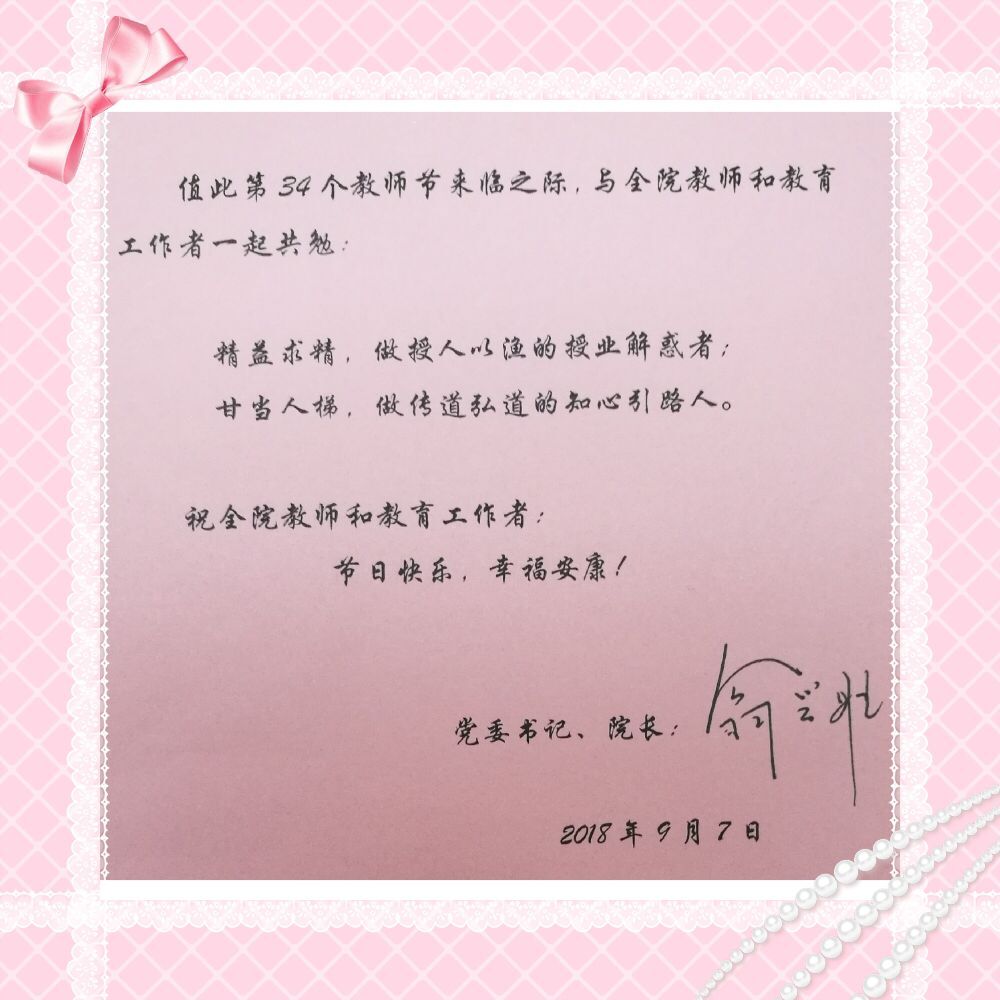 值此第34个教师节来临之际，与全院教师和教育
工作者一起共勉：
精益求精，做授人以渔的授业解惑者；
甘当人梯，做传道弘道的知心引路人。
祝全院教师和教育工作者：
节日快乐，幸福安康！
党委书记、院长：
2018年9月7日